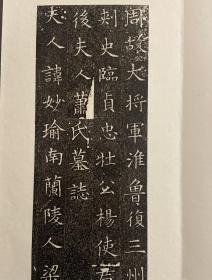 周故大将軍淮魯復三州
刺史臨貞忠壮公楊使君
後夫人蕭氏墓誌
夫人諱妙瑜南蘭陵人梁